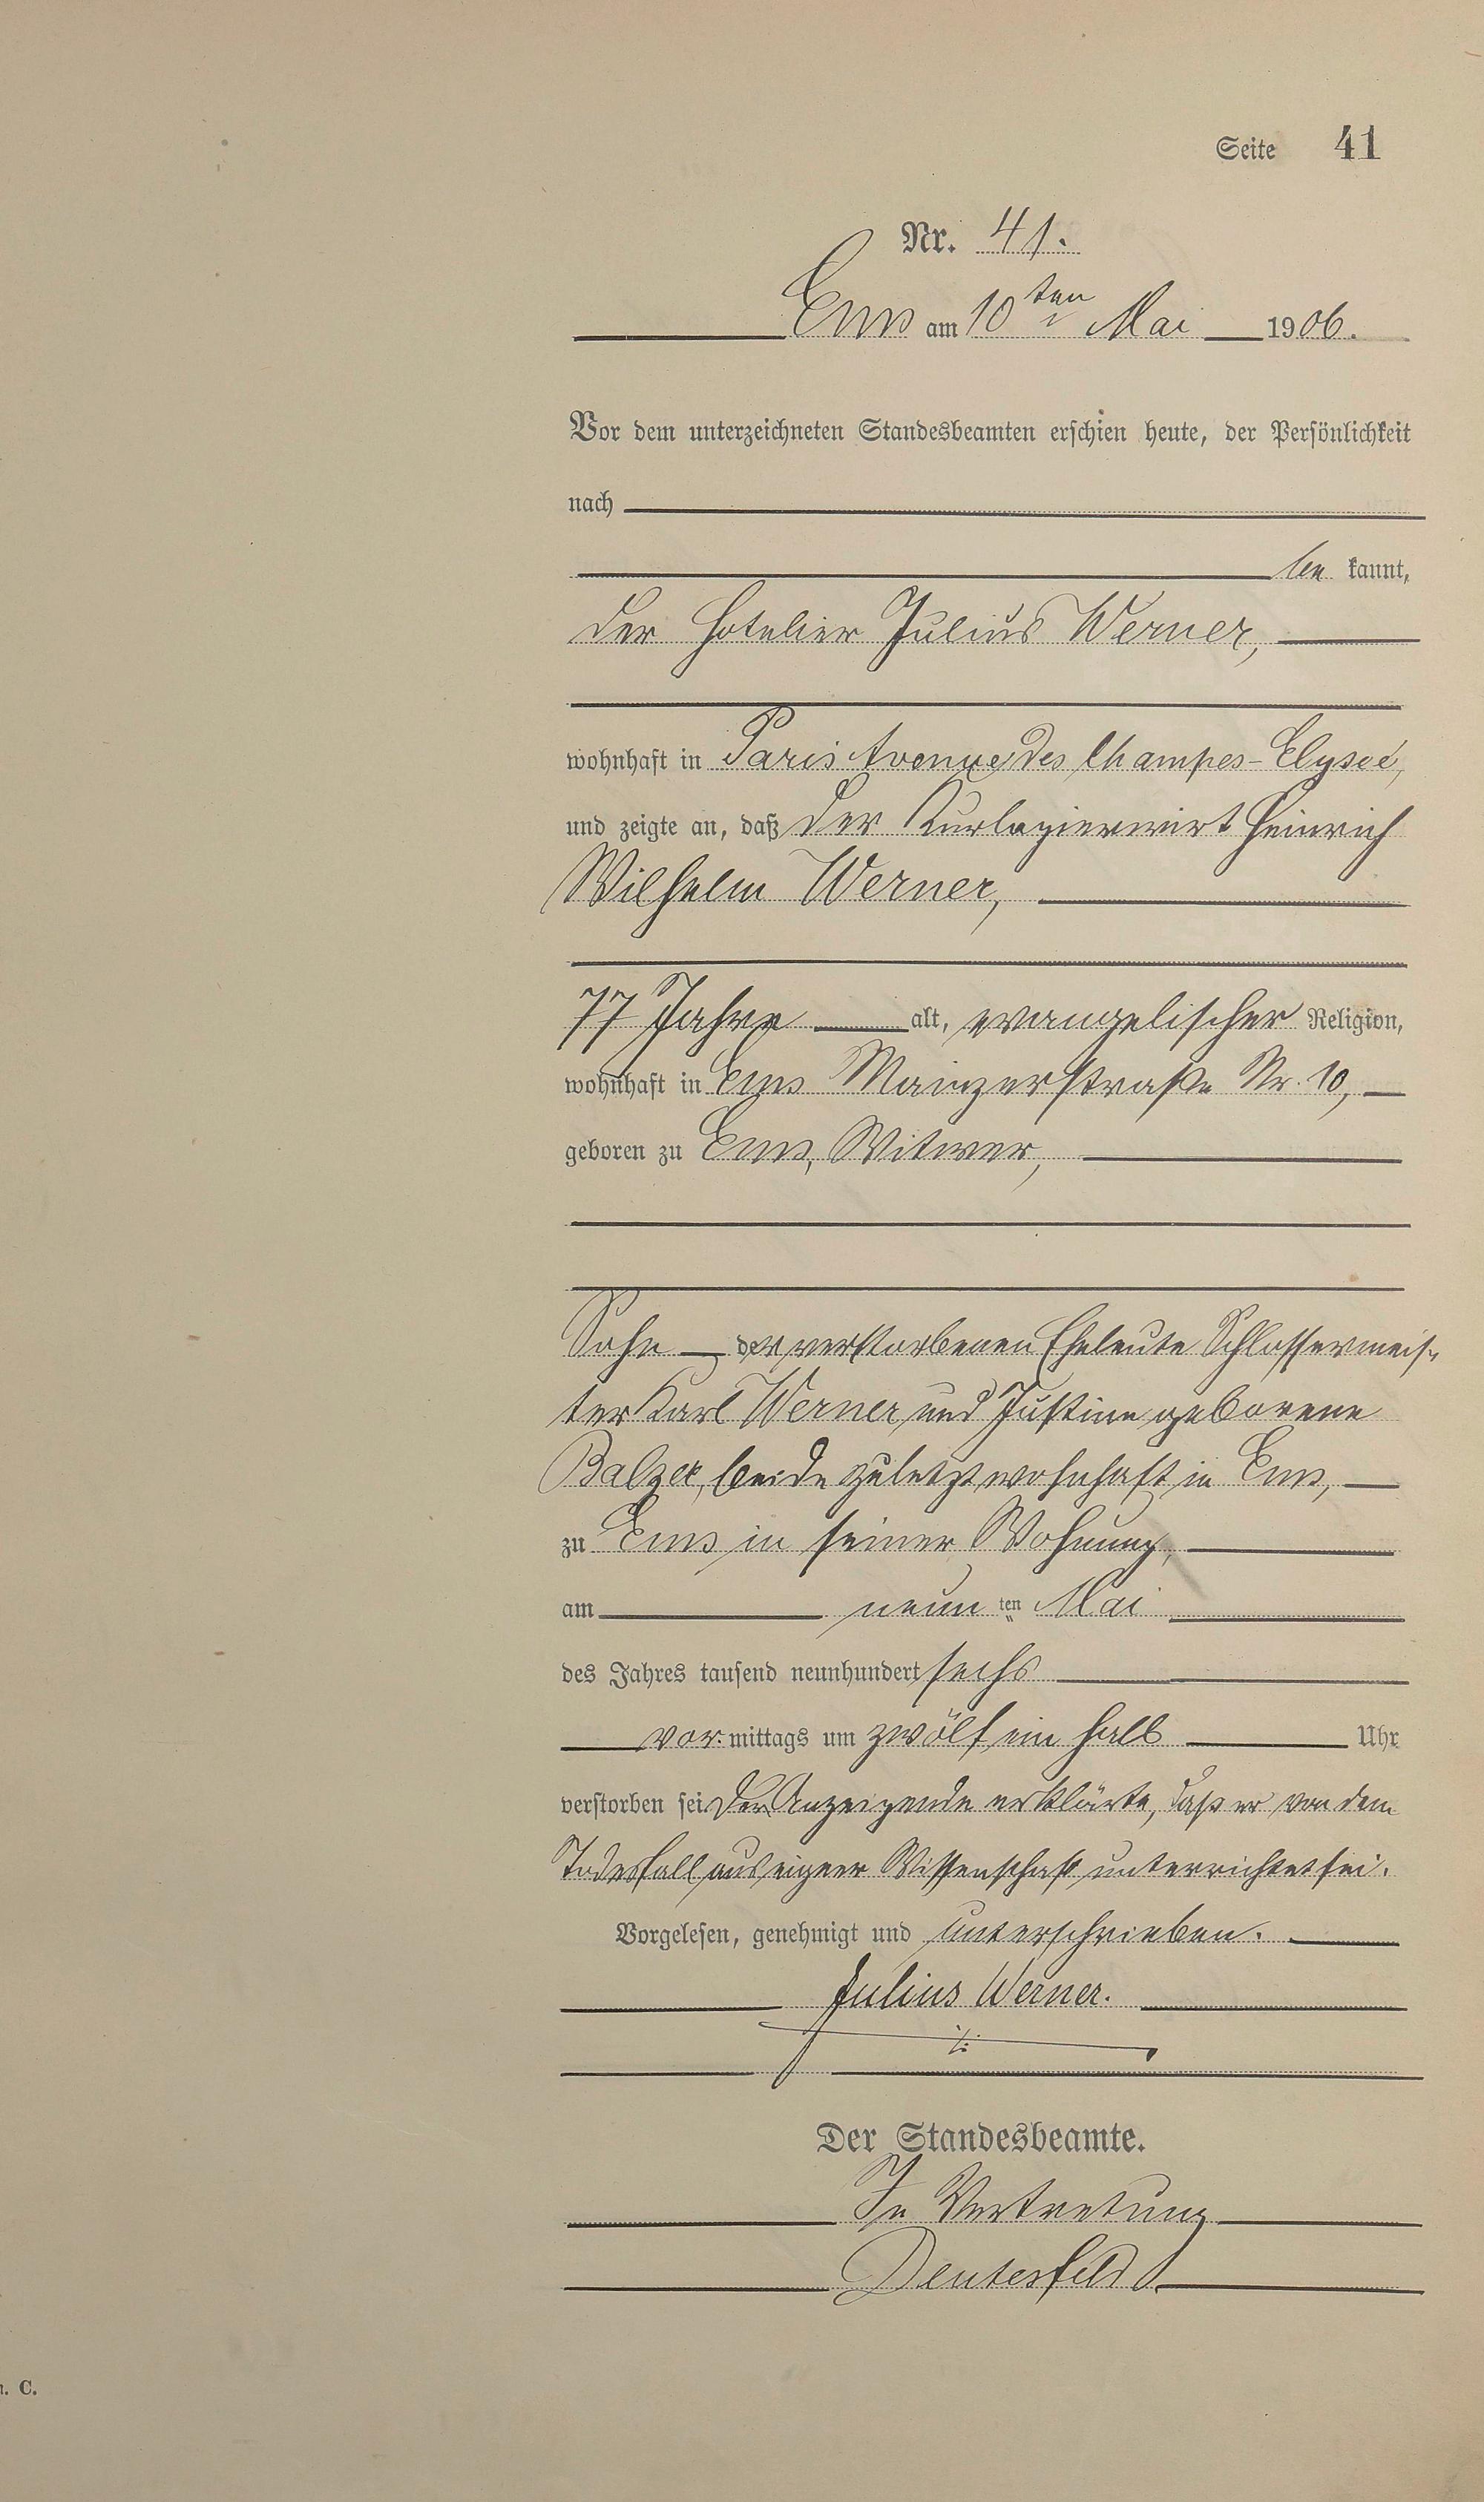 Seite 41
Nr. 41.
Ems am 10ten Mai 1906.
Vor dem unterzeichneten Standesbeamten erschien heute, der Persönlichkeit
nach
be kannt,
der Hotelier Julius Werner,
wohnhaft in Paris Avenue des Champes-Elyseé,
und zeigte an, daß der Kurlogierwirt Heinrich
Wilhelm Werner,
77 Jahre alt, evangelischer Religion,
wohnhaft in Ems Mainzerstraße Nr. 10,
geboren zu Ems, Witwer,
Sohn der verstorbenen Eheleute Schlossermeis-
ter Karl Werner und Justine geborene
Balzer, beide zuletzt wohnhaft in Ems,
zu Ems in seiner Wohnung,
am neun ten Mai
des Jahres tausend neunhundert sechs
vor mittags um zwölf ein halb Uhr
verstorben sei. Der Anzeigende erklärte, daß er von dem
Todesfall aus eigner Wissenschaft unterrichtet sei.
Vorgelesen, genehmigt und unterschrieben.
Julius Werner.
Der Standesbeamte.
In Vertretung
Deutesfeld
. C.